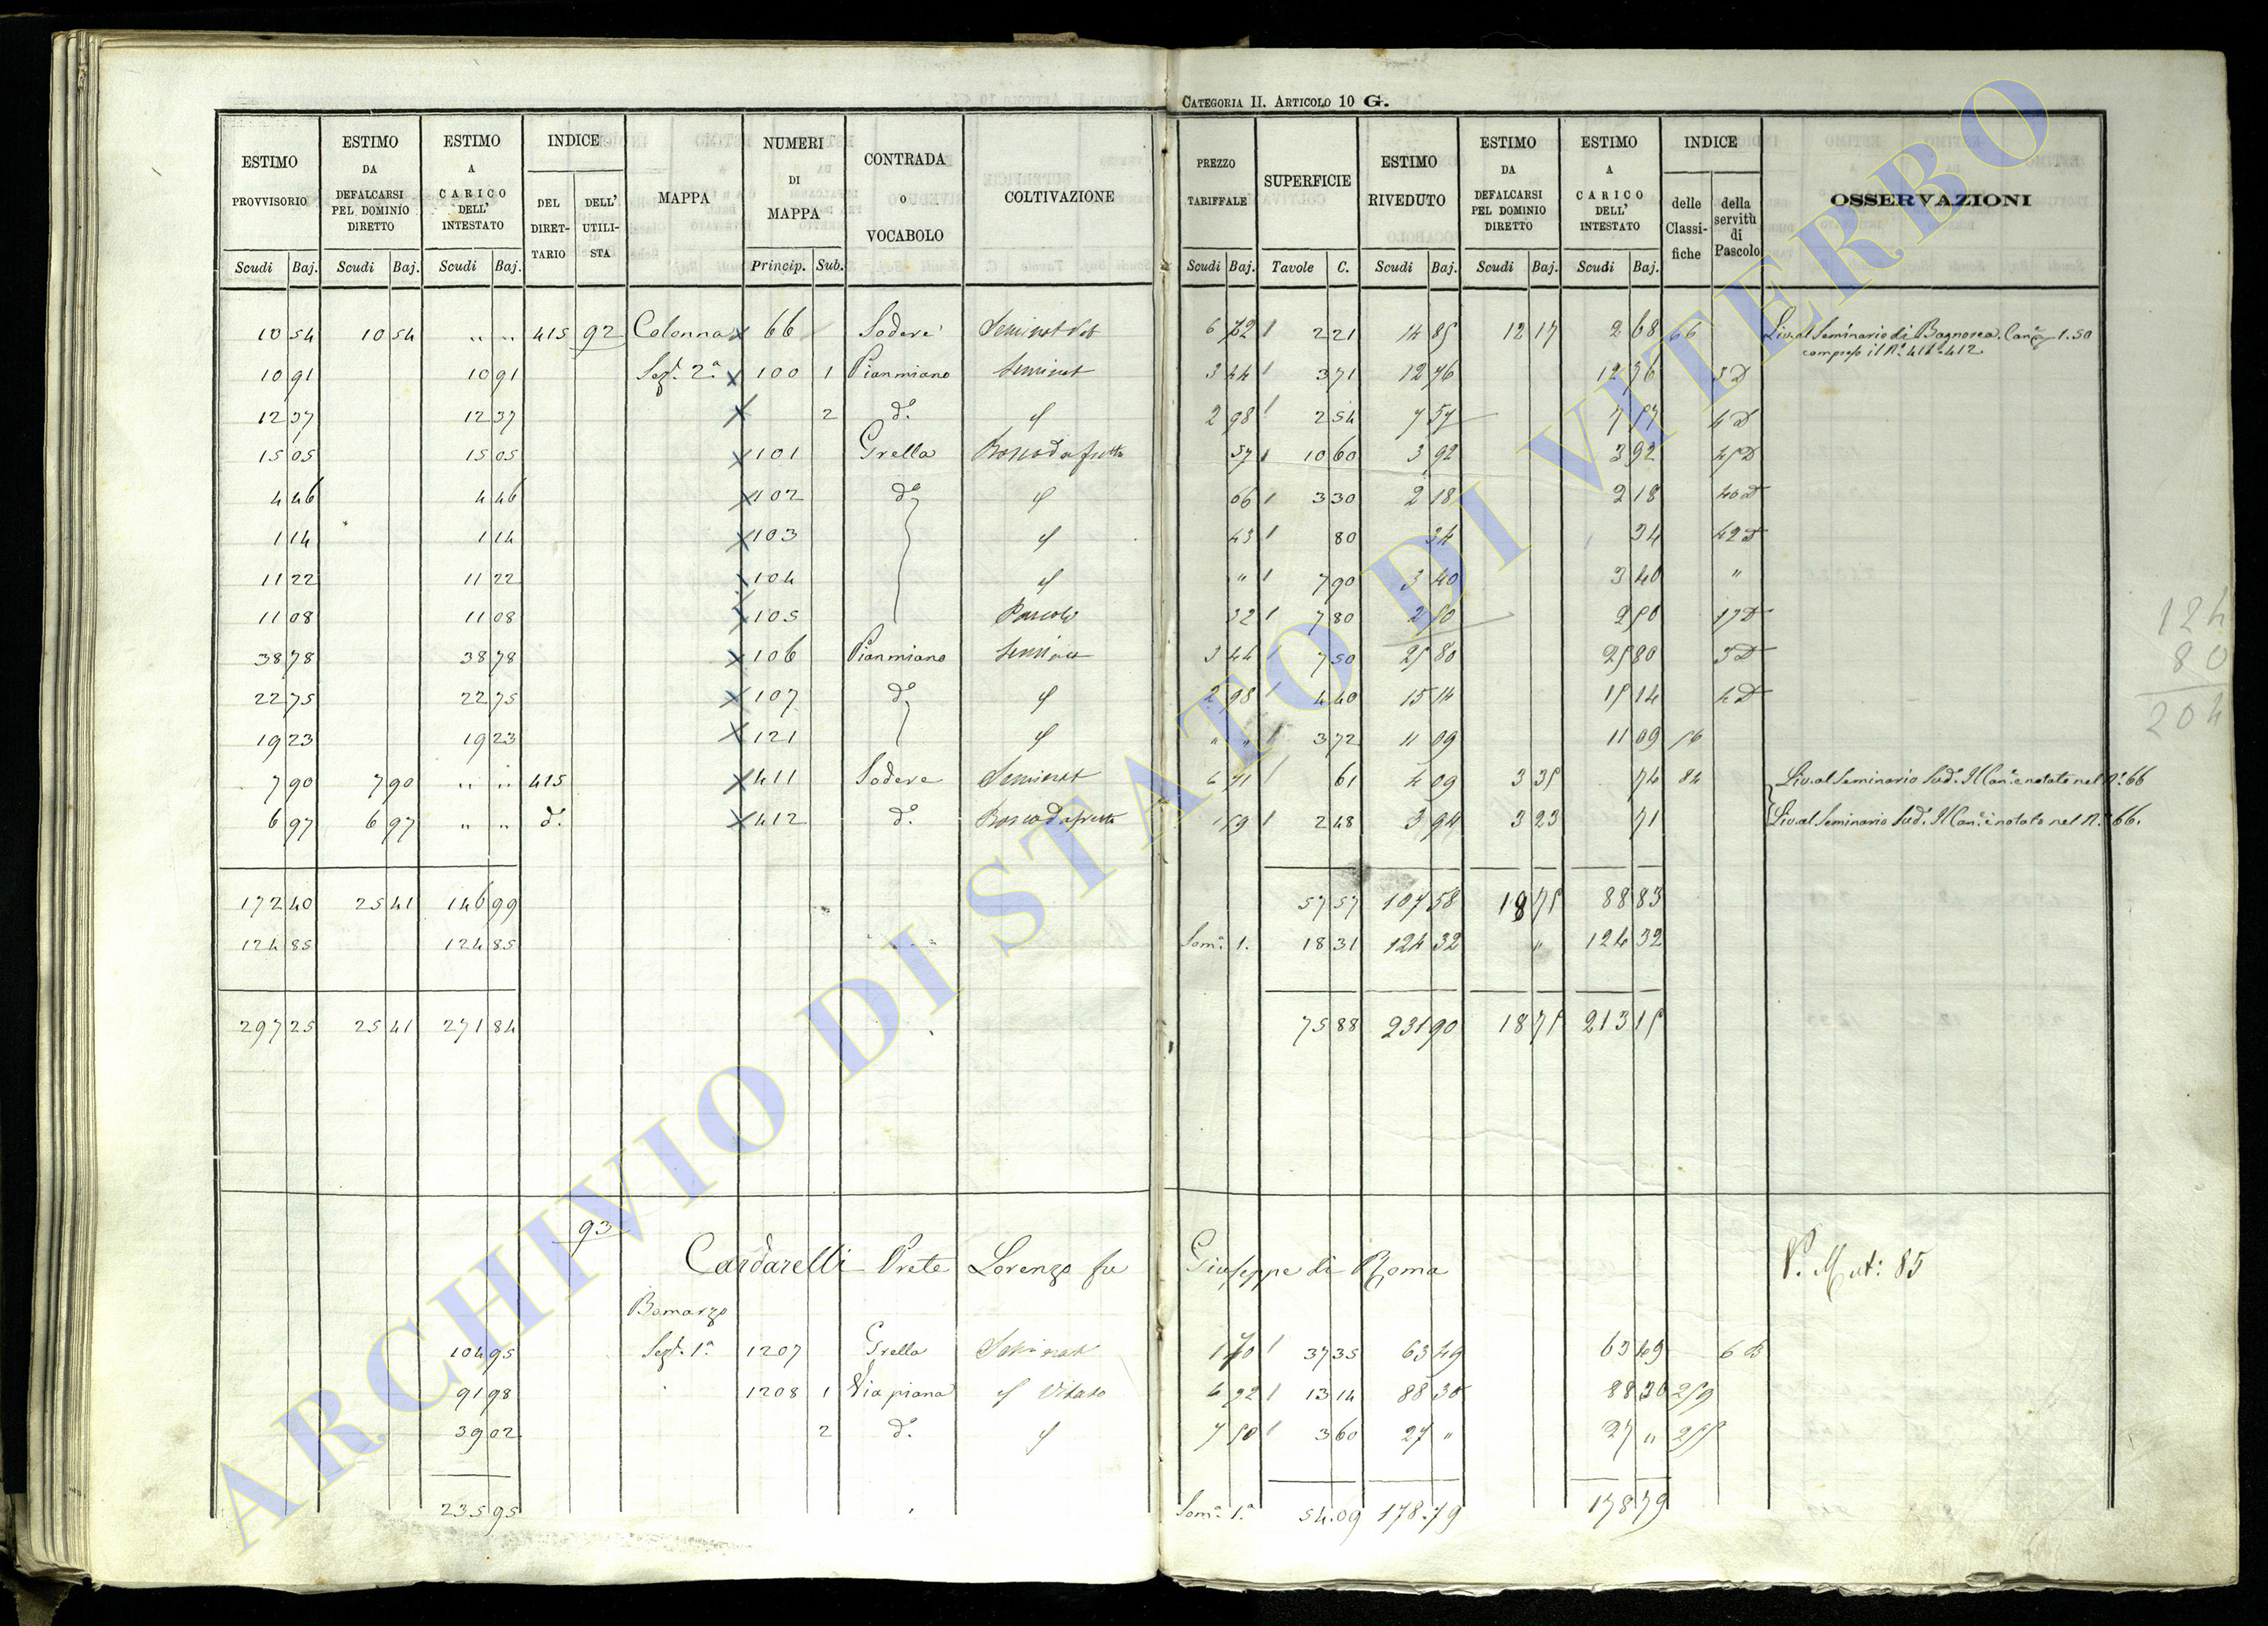 CATEGORIA II. ARTICOLO 10 G.
ESTIMO PROVVISORIO Scudi Baj. | ESTIMO DA DEFALCARSI PEL DOMINIO DIRETTO Scudi Baj. | ESTIMO A CARICO DELL' INTESTATO Scudi Baj. | INDICE DEL DIRETTARIO DELL' UTILISTA | MAPPA | NUMERI DI MAPPA Princip. Sub. | CONTRADA o VOCABOLO | COLTIVAZIONE | PREZZO TARIFFALE Scudi Baj. | SUPERFICIE Tavole C. | ESTIMO RIVEDUTO Scudi Baj. | ESTIMO DA DEFALCARSI PEL DOMINIO DIRETTO Scudi Baj. | ESTIMO A CARICO DELL' INTESTATO Scudi Baj. | INDICE delle Classifiche della servitù di Pascolo | OSSERVAZIONI
10 54 | 10 54 | " " | 415 | 92 | Colonna | x 66 | Sodere | Seminat Vit | 6 72 | 2 21 | 14 85 | 12 17 | 2 68 | 66 | Liv. al Seminario di Bagnorea. Can.e 1.50
compreso il N.i 411 e 412
10 91 | 10 91 | Sez. 2a | x 100 | 1 | Pianmiano | Seminat | 3 44 | 3 71 | 12 76 | 12 76 | 3 D
12 37 | 12 37 | x | 2 | d.o | " | 2 98 | 2 54 | 7 57 | 7 57 | 4 D
15 05 | 15 05 | x 101 | Grella | Bosco da frutto | 37 | 10 60 | 3 92 | 3 92 | 45 D
4 46 | 4 46 | x 102 | d.o | " | 66 | 3 30 | 2 18 | 2 18 | 40 D
1 14 | 1 14 | x 103 | " | 43 | 80 | 34 | 34 | 42 D
11 22 | 11 22 | x 104 | " | " | 7 90 | 3 40 | 3 40 | "
11 08 | 11 08 | x 105 | Pascolo | 32 | 7 80 | 2 50 | 2 50 | 17 D
38 78 | 38 78 | x 106 | Pianmiano | Seminat | 3 44 | 7 50 | 25 80 | 25 80 | 3 D
22 75 | 22 75 | x 107 | d.o | " | 2 98 | 4 40 | 15 14 | 15 14 | 4 D
19 23 | 19 23 | x 121 | " | " " | 3 72 | 11 09 | 11 09 | 56
7 90 | 7 90 | " " | 415 | x 411 | Sodere | Seminat | 6 71 | 61 | 4 09 | 3 35 | 74 | 84 | Liv. al Seminario Sud.o Il Can.e è notato nel N.o 66
6 97 | 6 97 | " " | d.o | x 412 | d.o | Bosco da frutto | 1 59 | 2 48 | 3 94 | 3 23 | 71 | Liv. al Seminario Sud.o Il Can.e è notato nel N.o 66.
124
80
204
172 40 | 25 41 | 146 99 | 57 57 | 107 58 | 18 75 | 88 83
124 85 | 124 85 | Som.a 1. | 18 31 | 124 32 | " | 124 32
297 25 | 25 41 | 271 84 | 75 88 | 231 90 | 18 75 | 213 15
93
Cardarelli Prete Lorenzo fu Giuseppe di Roma | V. Mut: 85
Bomarzo
104 95 | Sez. 1a | 1207 | Grella | Seminat | 1 70 | 37 35 | 63 49 | 63 49 | 6 B
91 98 | 1208 | 1 | Via piana | " Vitato | 6 72 | 13 14 | 88 30 | 88 30 | 259
39 02 | 2 | d.o | " | 7 50 | 3 60 | 27 " | 27 " | 255
235 95 | Som.a 1.a | 54.09 | 178.79 | 178 79
ARCHIVIO DI STATO DI VITERBO